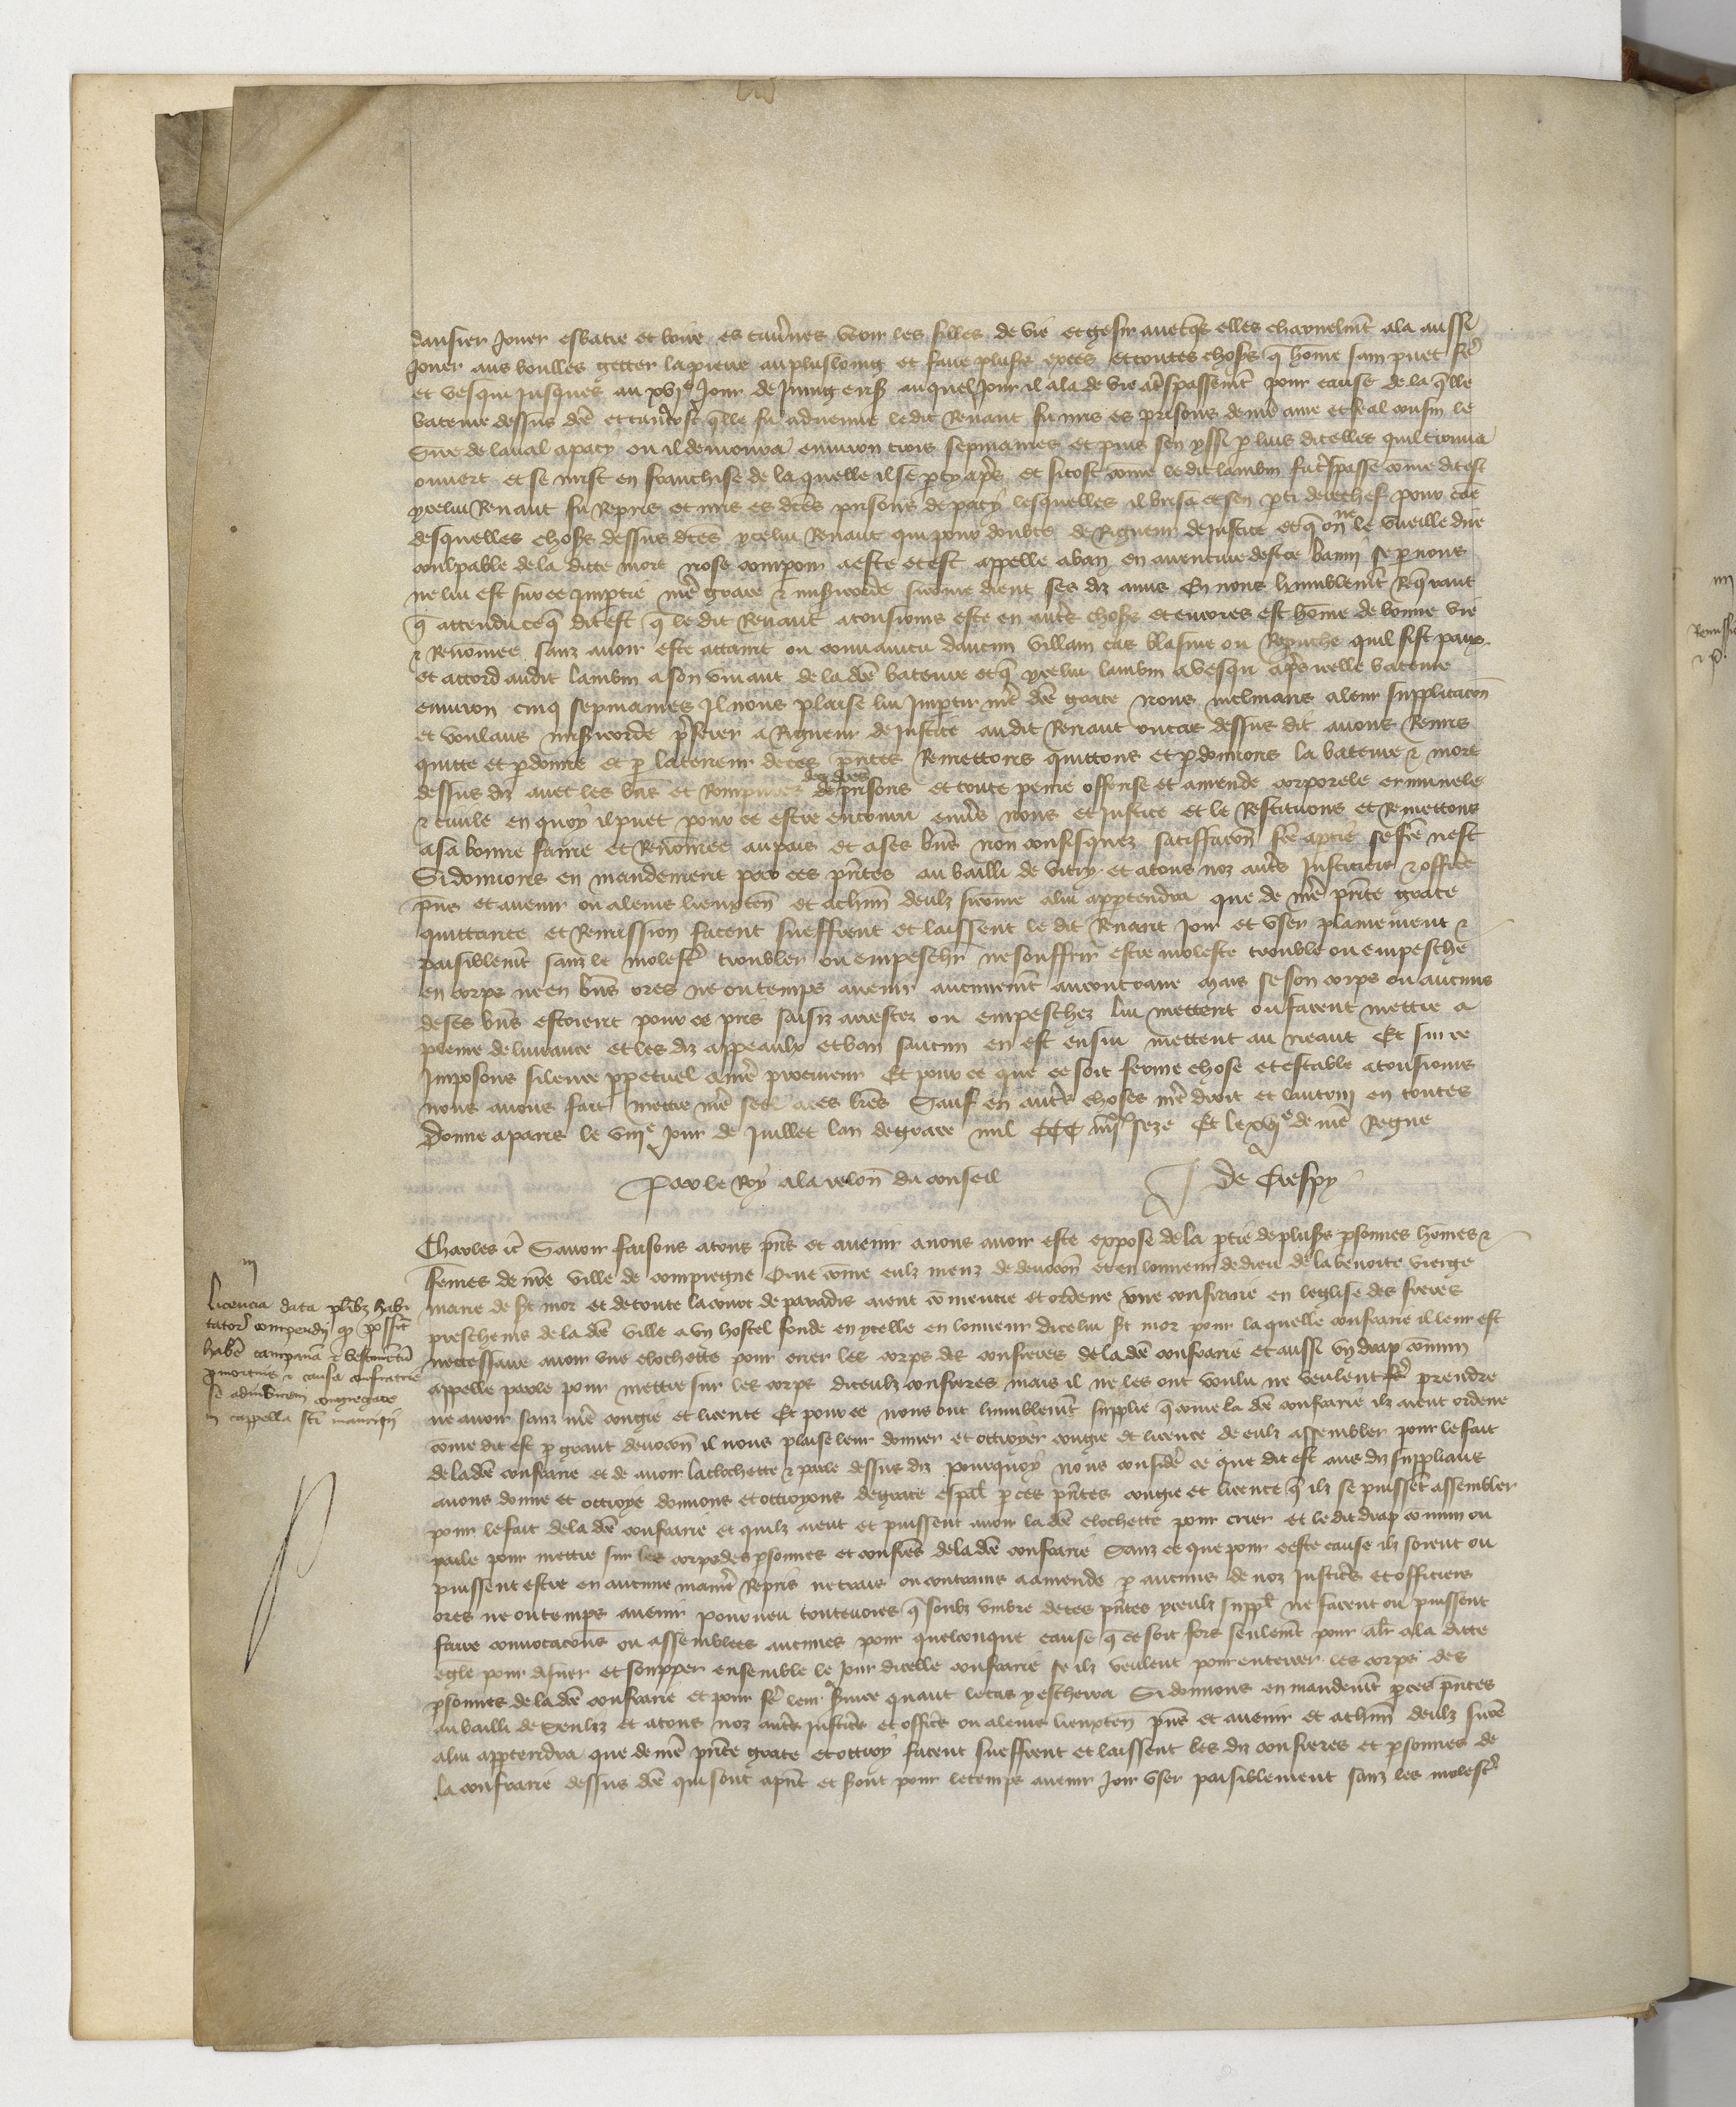 dansier Jouer esbatre et boire es tavnes veoir les filles de vie et gesir avecqs elles charnelmt ala aussi
Jouer aus boulles getter la pierre au plus loing et faire plusrs exces et toutes choses q home sain puet fe
et vesqui jusques au xvje Jour de Juing enss auquel Jour il ala de vie a trespassemt pour cause de la qlle
bateure dessus de et tantost qlle fu advenue ledit Renaut fu mis es prisons de nre ame et feal cousin le
Sire de laual a pacy ou il demoura environ trois sepmaines et puis sen yssi p luis dicelles quil trouva
ouvert et se mist en franchise de la quelle il se pty aps et sitost come le dit lambin fu trespasse come dit est
ycelui Renaut fu Repris et mis es dces prisons de pacy lesquelles il brisa et sen pti derechef pour cae
desquelles choses dessus dces ycelui Renaut qui pour doubte de Rigueur de Justice et q on ne le vueille dire
coulpable de la ditte mort nose comparoir a este et est appelle a ban en aventure destre banni se p nous
ne lui est sur ce Imptie nre grace & misicorde sicome dient ses diz amis En nous humblemt Reqrant
q attendu ce q dit est q le dit Renaut a tousjours este en autres choses et encores est home de bonne vie
& Renomee sanz avoir este attaint ou convaincu daucun villain cas blasme ou Reprouche quil fist paix
et accord audit lambin a son vivant de la dce bateure et q ycelui lambin a vesqu aps icelle bateure
environ cinq sepmaines Il nous plaise lui Imptir nre dce grace Nous inclinans a leur supplicacon
et voulans misicorde pferer a Rigueur de Justice audit Renaut ou cas dessus dit avons Remis
quitte et pdonne et p la teneur de ces pntes Remettons quittons et pdonnons la bateure & mort
dessus diz avec les bris et Rompures des dces prisons et toute peine offense et amende corporele criminele
& civile en quoy il puet pour ce estre encouru envs nous et justice et le Restituons et Remettons
a sa bonne fame et Renomee au pais et a ses bns non confisquez satisfacon fce a ptie se fce nest
Si donnons en mandement par ces pntes au bailli de vitry et a tous noz autrs Justiciers & officrs
pns et avenir ou a leurs lieuxten et a chun deulz sicome a lui apptendra que de nre pnte grace
quittance et Remission facent sueffrent et laissent le dit Renaut Joir et vser plainement &
paisiblemt sanz le molester troubler ou empeschr ne souffrir estre moleste trouble ou empeschie
en corps ne en bns ores ne ou temps avenir aucunemt au contraire Mais se son corps ou aucuns
de ses bns estoient pour ce pris saisiz arrestez ou empeschez lui mettent ou facent mettre a
pleine delivrance et les diz appeaulx et ban saucun en est ensui mettent au neant Et sur ce
Imposons silence ppetuel a nre procureur Et pour ce que ce soit ferme chose et estable a tousjours
nous avons fait mettre nre seel a ces lres Sauf en autrs choses nre droit et lautruy en toutes
Donne a paris le viije Jour de Juillet lan de grace mil CCC iiijxx seze Et le xvje de nre Regne
Par le Roy a la relon du conseil J De Crespy
Charles etc Savoir faisons a tous pns et avenir a nous avoir este expose de la ptie de plusrs psonnes homes &
femes de nre ville de compiegne Que come eulz meuz de devocon et en lonneur de dieu de la benoite vierge
marie de St mor et de toute la court de paradis aient comencie et ordene une confrarie en leglise des freres
prescheurs de la dce ville a vn hostel fonde en ycelle en lonneur dicelui St mor pour la quelle confrarie il leur est
necessaire avoir vne clochette pour crier les corps des confreres de la dce confrarie et aussi vn drap comun
appelle paele pour mettre sur les corps diceulz confreres mais il ne les ont voulu ne veulent fe prendre
ne avoir sanz nre congie et licence Et pour ce nous ont humblemt supplie q come la dce confrarie ilz aient ordene
come dit est p grant devocon il nous plaise leur donner et ottroyer congie et licence de eulz assembler pour le fait
de la dce confrarie et de avoir la clochette & paele dessus diz pourquoy nous consider ce que dit est aus diz supplians
avons donne et ottroye donnons et ottroyons de grace espal p ces pntes congie et licence q ilz se puissent assembler
pour le fait de la dce confrarie et quilz aient et puissent avoir la dce clochette pour crier et le dit drap comun ou
paile pour mettre sur les corps des psonnes et confres de la dce confrarie Sanz ce que pour ceste cause ilz soient ou
puissent estre en aucune manie Repris ne trais ou contrains a amende p aucuns de noz Justicrs et officiers
ores ne ou temps avenir pourveu toutevoies q soubz umbre de ces pntes yceulz suppl ne facent ou puissent
faire convocacons ou assemblees aucunes pour quelconque cause q ce soit fors seulemt pour alr a la ditte
egle pour disner et soupper ensemble le Jour dicelle confrarie se ilz veulent pour enterrer les corps des
psonnes de la dce confrarie et pour fe leur svice quant le cas y eschera Si donnons en mandemt p ces pntes
au bailli de Senliz et a tous noz autrs justicrs et officrs ou a leurs lieuxten pns et avenir et a chun deulz sicoe
a lui apptendra que de nre pnte grace et ottroy facent sueffrent et laissent les diz confreres et psonnes de
la confrarie dessus dce qui sont a pnt et sont pour le temps avenir Joir vser paisiblement sanz les molester
iij
Licencia data plibz habi
tator compendij qd possit
habe campanam & vestimentu
p mortuis & causa confratrie
se adinvicem congregare
in cappella sti mauricij